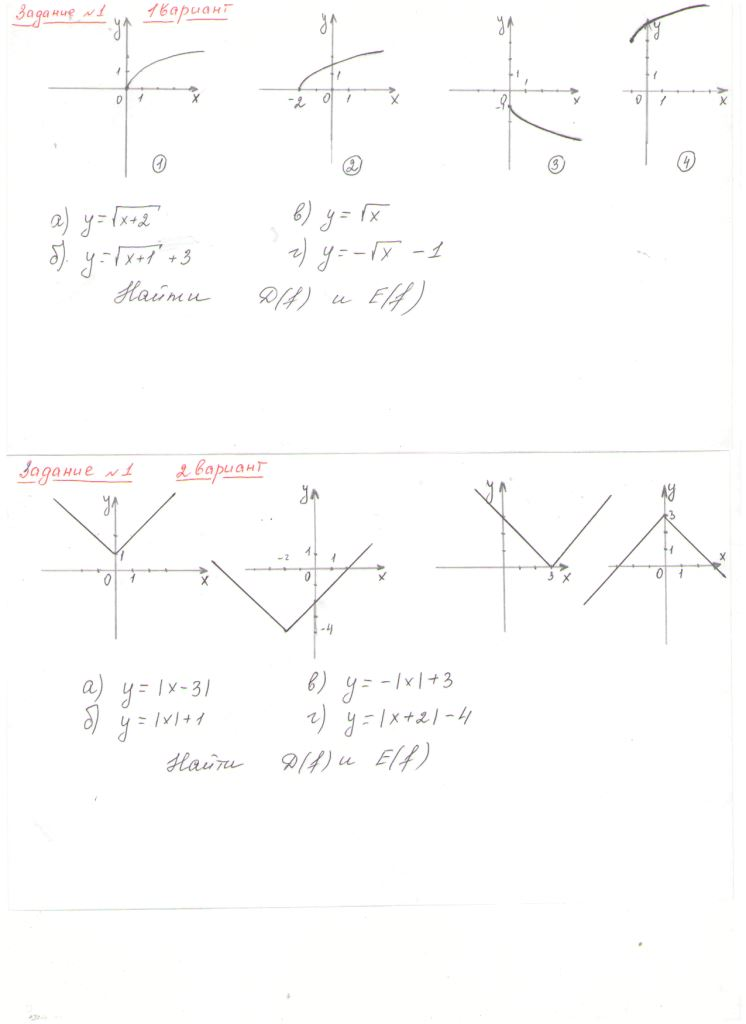 Задание №1 1 вариант
y 1 0 1 x ①
y 1 -2 0 1 x ②
y 1 0 1 x -1 ③
y 0 1 x ④
а) y = √x+2 в) y = √x
б) y = √x+1 + 3 г) y = -√x - 1
Найти D(f) и E(f)
Задание №1 2 вариант
y 1 0 1 x
y -2 1 1 0 x -4
y 3 x
y 3 1 0 1 x
а) y = |x-3| в) y = -|x|+3
б) y = |x|+1 г) y = |x+2|-4
Найти D(f) и E(f)